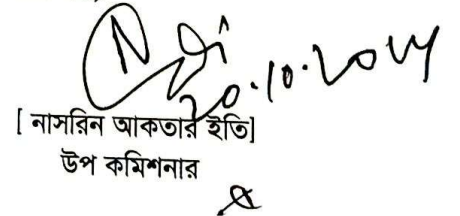 20.10.2024
[ নাসরিন আকতার ইতি]
উপ কমিশনার